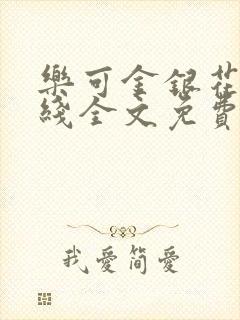 樂可金銀花
綫全文免費
我愛簡愛